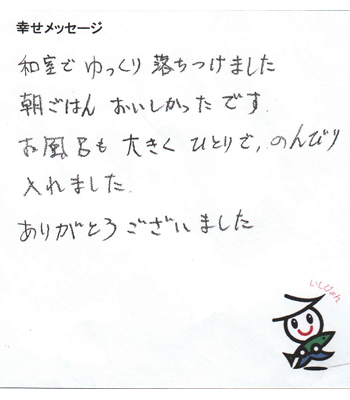 幸せメッセージ
和室で ゆっくり 落ちつけました
朝ごはん おいしかったです.
お風呂も 大きく ひとりで, のんびり
入れました.
ありがとうございました
いしぴょん